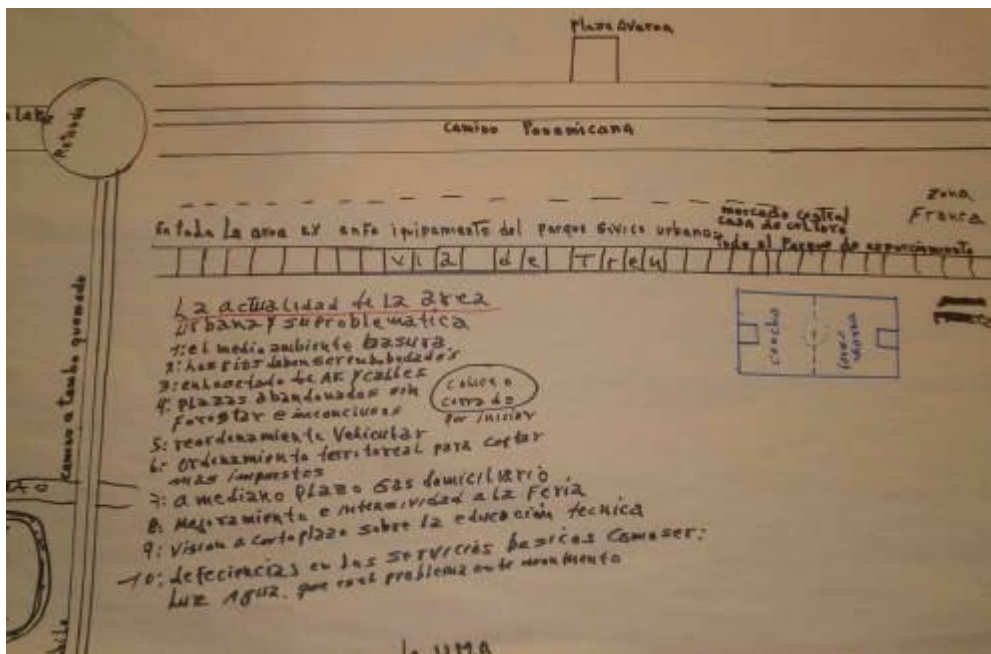 Plaza Avaroa
Rotonda
Camino Panamicana
zona
Franca
mercado central
casa de coltora
En toda La area ex enfe iquipamiento del parque sivico urbano
todo el Parque de
via de Tren
La actualidad de la area
urbana y su problematica
1: el medio ambiente basura
2: Los rios deben ser
3: enlosetado de AV. y calles
4: plazas abandonados sin
Forestar e inconclusas
coliceo
cerrado
Por iniciar
5: reordenamiento Vehicular
6: ordenamiento territoreal para captar
mas impuestos
7: a mediano plazo Gas domiciliario
8: Mejoramiento e a la Feria
9: Vision a corto plazo sobre la educacion tecnica
10: defeciencias en los servicios basicos como ser:
Luz Agua, que es el problema en este
cancha
camino a tambo quemado
la UMA